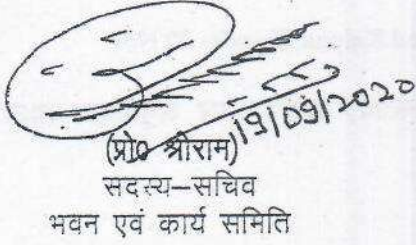 19/09/2020
(प्रो0 श्रीराम)
सदस्य–सचिव
भवन एवं कार्य समिति